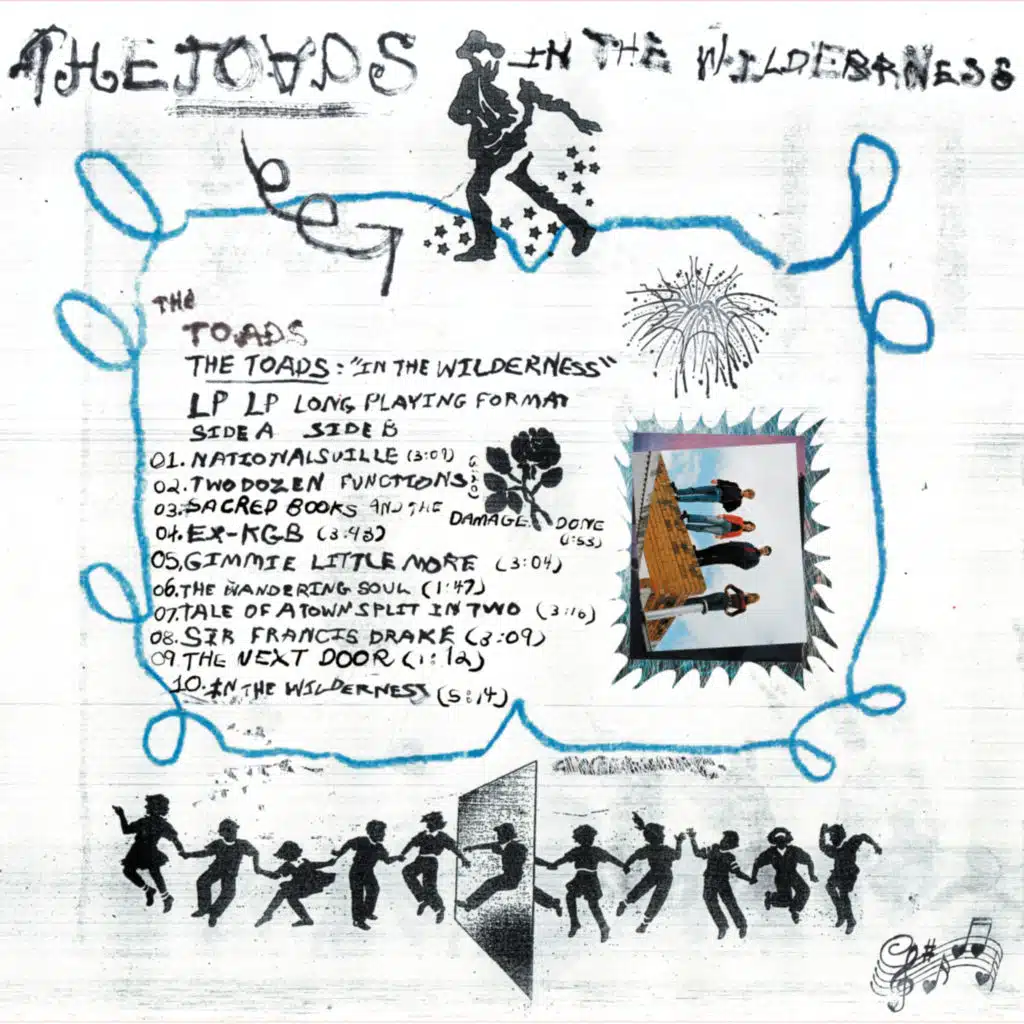 THE TOADS IN THE WILDERNESS
THE
TOADS
THE TOADS: "IN THE WILDERNESS"
LP LP LONG PLAYING FORMAT
SIDE A SIDE B
01. NATIONALSVILLE
02. TWO DOZEN FUNCTIONS
03. SACRED BOOKS AND THE DAMAGE DONE (1:53)
04. EX-KGB (3:43)
05. GIMMIE LITTLE MORE (3:04)
06. THE WANDERING SOUL (1:47)
07. TALE OF A TOWN SPLIT IN TWO (3:16)
08. SIR FRANCIS DRAKE (3:09)
09. THE NEXT DOOR (1:12)
10. IN THE WILDERNESS (5:14)